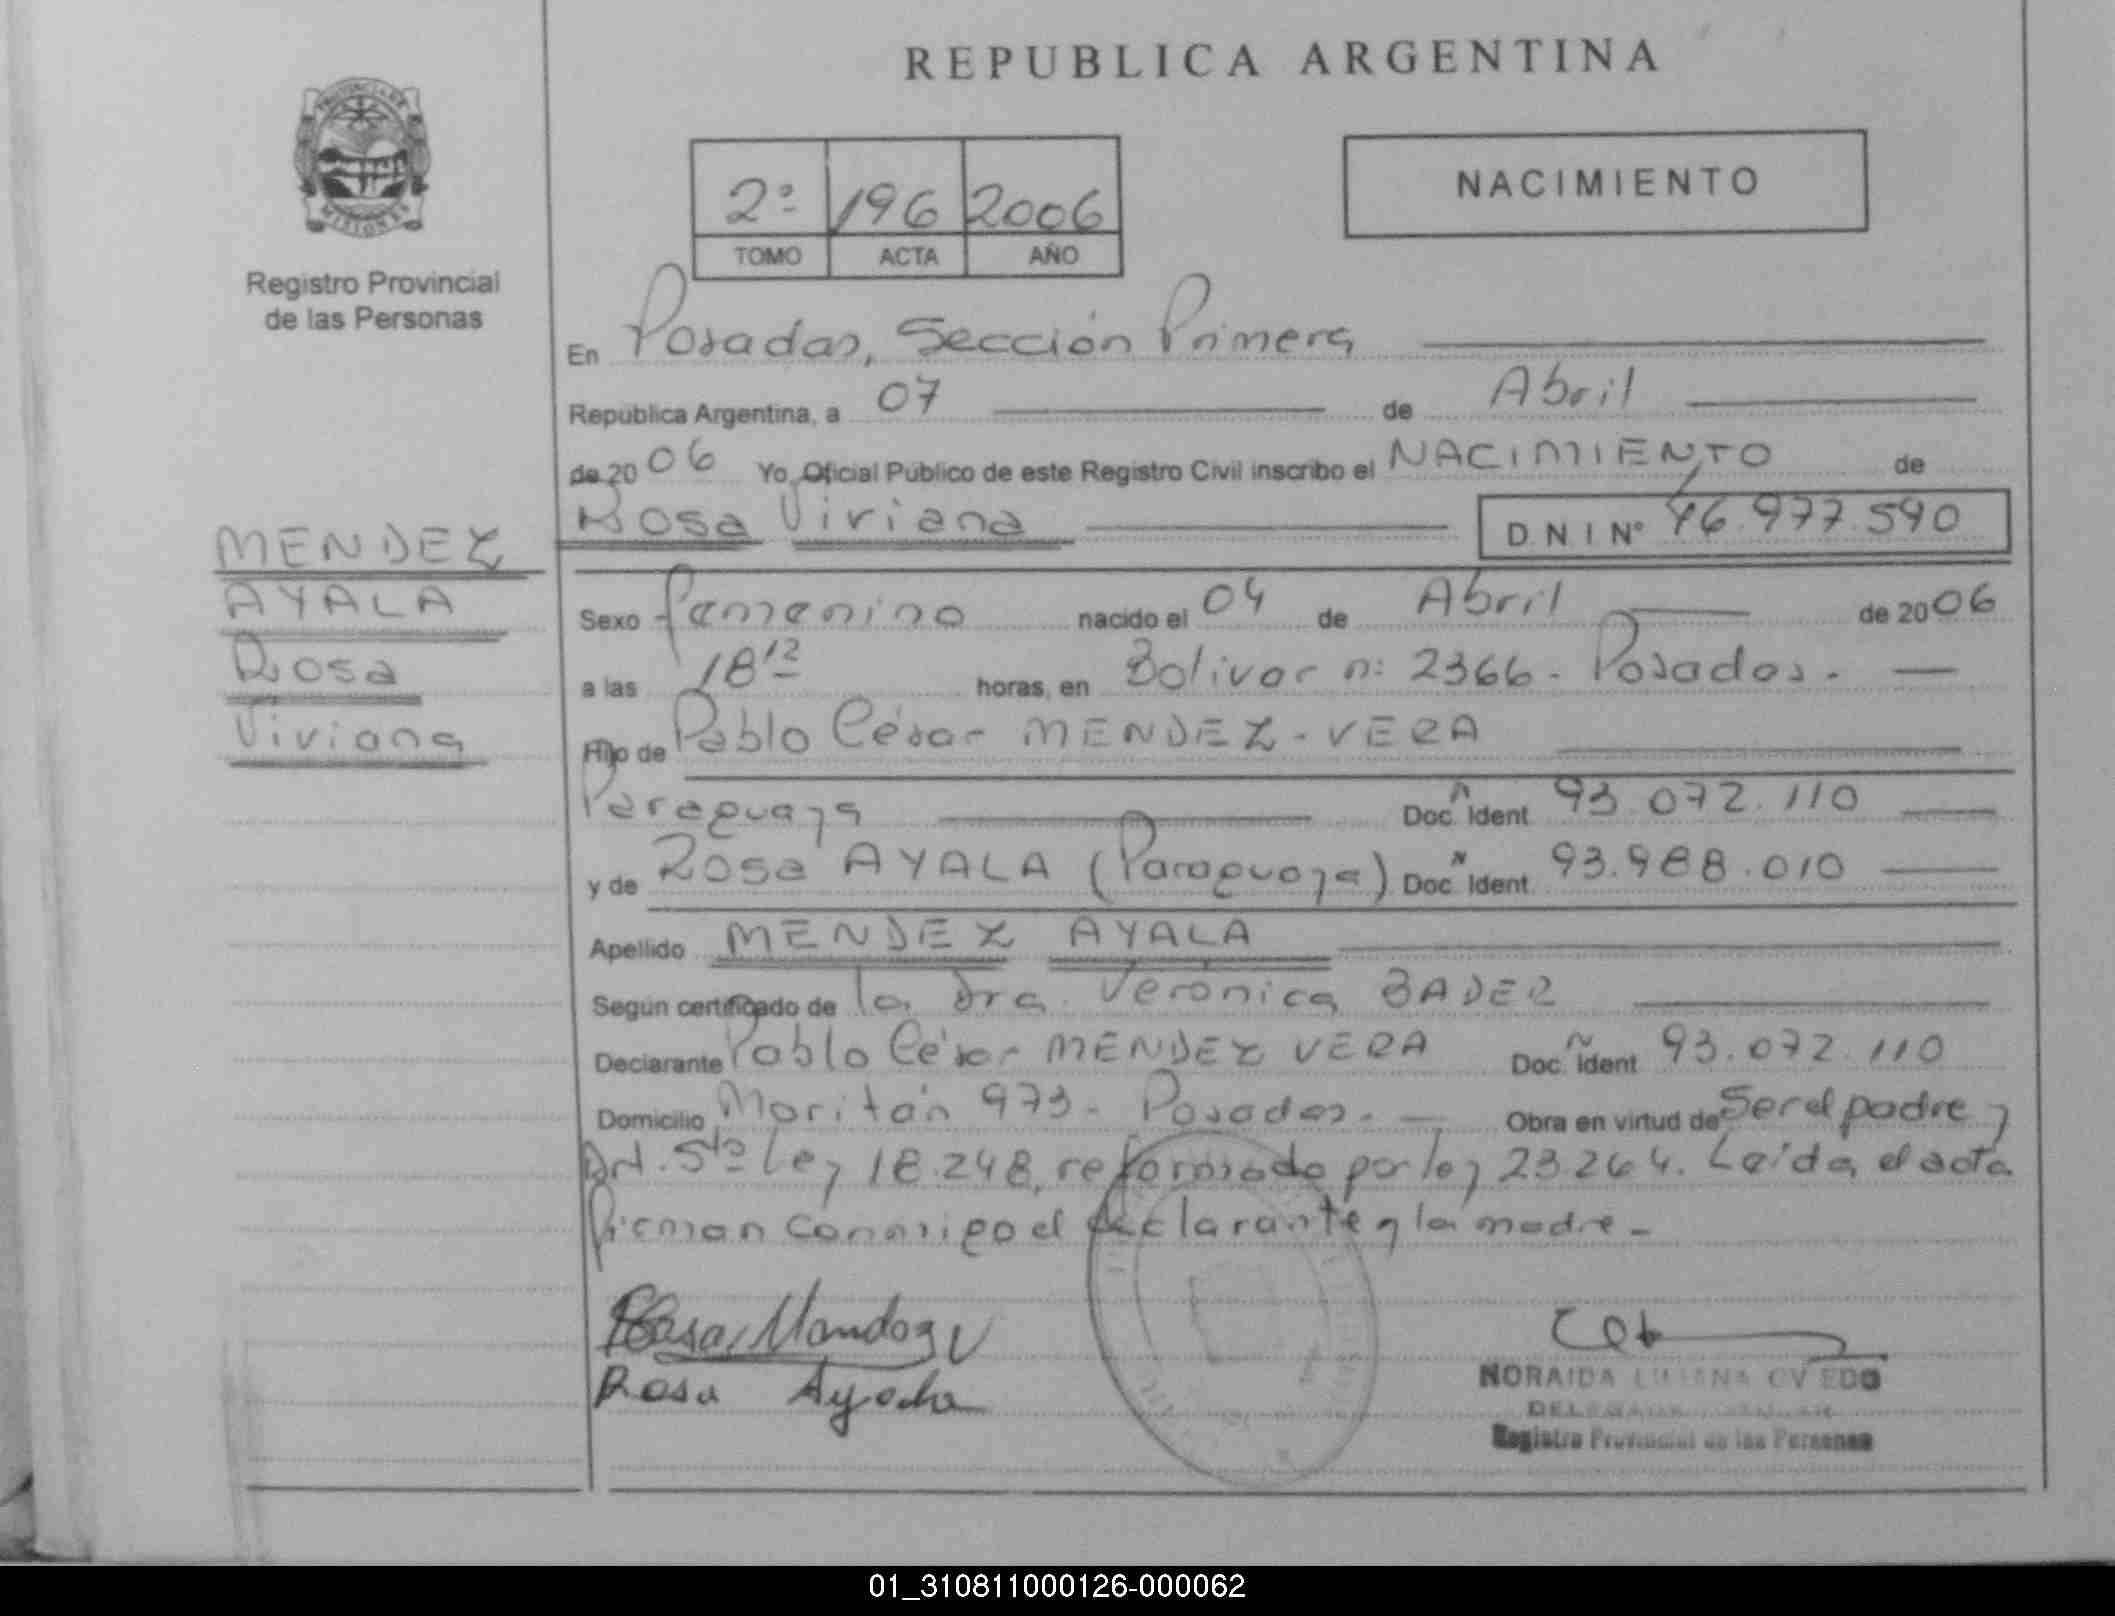 REPUBLICA ARGENTINA
PROVINCIA DE
MISIONES
Registro Provincial
de las Personas
2º 196 2006
TOMO ACTA AÑO
NACIMIENTO
En Posadas, Sección Primera
Republica Argentina, a 07 de Abril
de 2006 Yo Oficial Publico de este Registro Civil inscribo el NACIMIENTO de
Rosa Viviana D.N.I Nº 46.977.590
MENDEZ
AYALA
Rosa
Viviana
Sexo femenino nacido el 04 de Abril de 2006
a las 18¹² horas, en Bolivar n: 2366 - Posadas. -
Hijo de Pablo César MENDEZ - VERA
Paraguaya Doc. Ident. 93.072.110
y de Rosa AYALA (Paraguaya) Doc. Ident. 93.988.010
Apellido MENDEZ AYALA
Según certificado de la Dra. Verónica BADER
Declarante Pablo César MENDEZ VERA Doc. Ident 93.072.110
Domicilio Moritán 973 - Posadas. - Obra en virtud de Ser el padre y
Art. 5to Ley 18.248, reformado por ley 23.264. Leída el acta
firman conmigo el declarante y la madre -
Rosa Ayala
NORAIDA LILIANA OVIEDO
Registro Provincial de las Personas
01_310811000126-000062